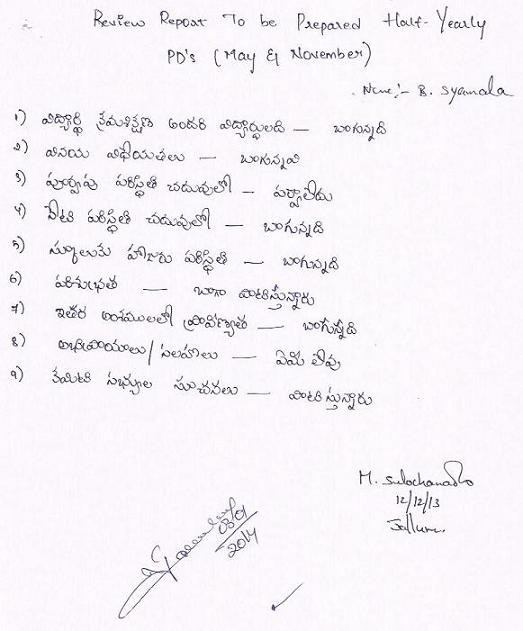 Review Report To be Prepared Half-Yearly
PD's (May & November)
Name:- B. Syamala
1) విద్యార్థి క్రమశిక్షణ అందరి విద్యార్థులది — బాగున్నది
2) వినయ విధేయతలు — బాగున్నవి
3) పూర్వపు పరిస్థితి చదువులో — పర్వాలేదు
4) నేటి పరిస్థితి చదువులో — బాగున్నది
5) స్కూలుకు హాజరు పరిస్థితి — బాగున్నది
6) పరిశుభ్రత — బాగా పాటిస్తున్నారు
7) ఇతర అంశములలో ప్రావీణ్యత — బాగున్నది
8) అభిప్రాయాలు/సలహాలు — ఏమి లేవు
9) కమిటి సభ్యుల సూచనలు — పాటిస్తున్నారు
M. Sulochana
12/12/13
03/01
2014